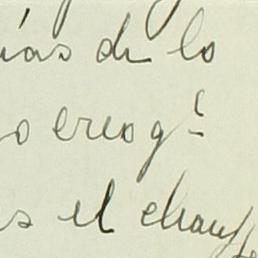 ías de lo
o creo q?
s el chauff